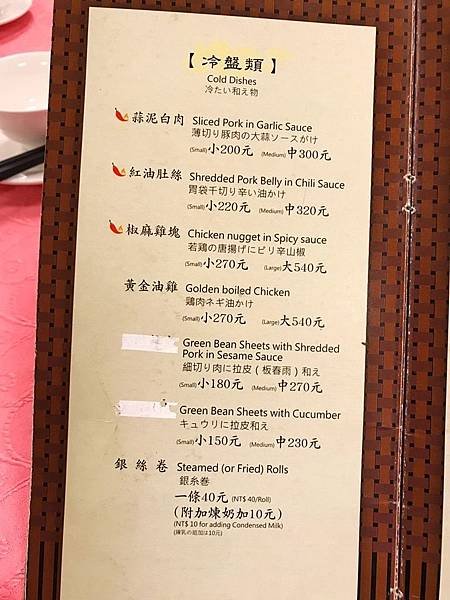 【冷盤類】
Cold Dishes
冷たい和え物
蒜泥白肉 Sliced Pork in Garlic Sauce
薄切り豚肉の大蒜ソースがけ
(Small)小200元 (Medium)中300元
紅油肚絲 Shredded Pork Belly in Chili Sauce
胃袋千切り辛い油かけ
(Small)小220元 (Medium)中320元
椒麻雞塊 Chicken nugget in Spicy sauce
若鶏の唐揚げにピリ辛山椒
(Small)小270元 (Large)大540元
黃金油雞 Golden boiled Chicken
鶏肉ネギ油かけ
(Small)小270元 (Large)大540元
Green Bean Sheets with Shredded
Pork in Sesame Sauce
細切り肉に拉皮(板春雨)和え
(Small)小180元 (Medium)中270元
Green Bean Sheets with Cucumber
キュウリに拉皮和え
(Small)小150元 (Medium)中230元
銀絲卷 Steamed (or Fried) Rolls
銀糸巻
一條40元 (NT$ 40/Roll)
(附加煉奶加10元)
(NT$ 10 for adding Condensed Milk)
(練乳の追加は10元)